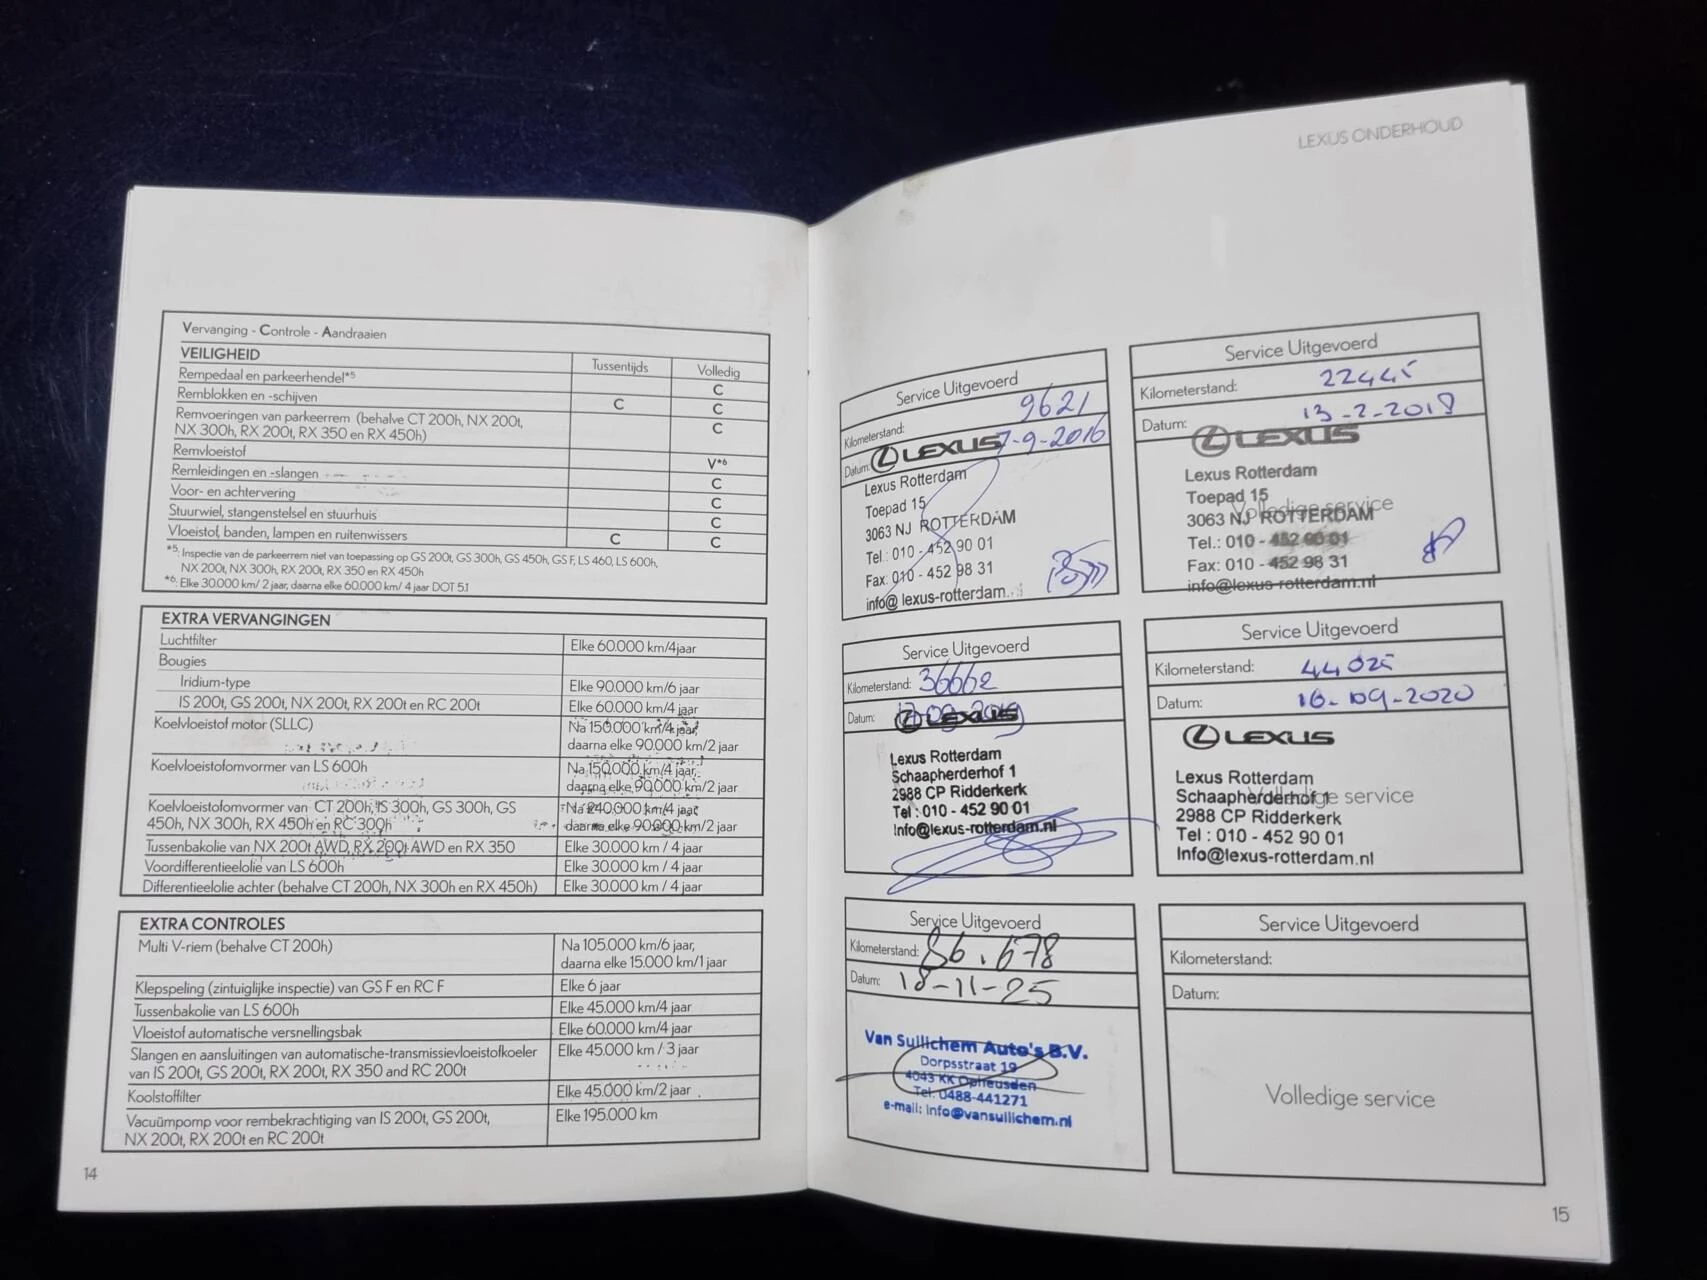 Vervanging - Controle - Aandraaien
VEILIGHEID Tussentijds Volledig
Rempedaal en parkeerhendel*5 C
Remblokken en -schijven C C
Remvoeringen van parkeerrem (behalve CT 200h, NX 200t, C
NX 300h, RX 200t, RX 350 en RX 450h)
Remvloeistof V*6
Remleidingen en -slangen C
Voor- en achtervering C
Stuurwiel, stangenstelsel en stuurhuis C
Vloeistof, banden, lampen en ruitenwissers C C
*5: Inspectie van de parkeerrem niet van toepassing op GS 200t, GS 300h, GS 450h, GS F, LS 460, LS 600h,
NX 200t, NX 300h, RX 200t, RX 350 en RX 450h
*6: Elke 30.000 km/ 2 jaar, daarna elke 60.000 km/ 4 jaar DOT 5.1
EXTRA VERVANGINGEN
Luchtfilter Elke 60.000 km/4jaar
Bougies
Iridium-type Elke 90.000 km/6 jaar
IS 200t, GS 200t, NX 200t, RX 200t en RC 200t Elke 60.000 km/4 jaar
Koelvloeistof motor (SLLC) Na 150.000 km/4 jaar,
daarna elke 90.000 km/2 jaar
Koelvloeistofomvormer van LS 600h Na 150.000 km/4 jaar,
daarna elke 90.000 km/2 jaar
Koelvloeistofomvormer van CT 200h, IS 300h, GS 300h, GS Na 240.000 km/4 jaar
450h, NX 300h, RX 450h en RC 300h daarna elke 90.000 km/2 jaar
Tussenbakolie van NX 200t AWD, RX 200t AWD en RX 350 Elke 30.000 km / 4 jaar
Voordifferentieelolie van LS 600h Elke 30.000 km / 4 jaar
Differentieelolie achter (behalve CT 200h, NX 300h en RX 450h) Elke 30.000 km / 4 jaar
EXTRA CONTROLES
Multi V-riem (behalve CT 200h) Na 105.000 km/6 jaar,
daarna elke 15.000 km/1 jaar
Klepspeling (zintuiglijke inspectie) van GS F en RC F Elke 6 jaar
Tussenbakolie van LS 600h Elke 45.000 km/4 jaar
Vloeistof automatische versnellingsbak Elke 60.000 km/4 jaar
Slangen en aansluitingen van automatische-transmissievloeistofkoeler Elke 45.000 km / 3 jaar
van IS 200t, GS 200t, RX 200t, RX 350 and RC 200t
Koolstoffilter Elke 45.000 km/2 jaar
Vacuümpomp voor rembekrachtiging van IS 200t, GS 200t, Elke 195.000 km
NX 200t, RX 200t en RC 200t
14
LEXUS ONDERHOUD
Service Uitgevoerd
Kilometerstand: 9621
Datum: 7-9-2016
LEXUS
Lexus Rotterdam
Toepad 15
3063 NJ ROTTERDAM
Tel.: 010 - 452 90 01
Fax: 010 - 452 98 31
info@lexus-rotterdam.
Service Uitgevoerd
Kilometerstand: 22445
Datum: 13-2-2018
LEXUS
Lexus Rotterdam
Toepad 15
Volledige service
3063 NJ ROTTERDAM
Tel.: 010 - 452 90 01
Fax: 010 - 452 98 31
info@lexus-rotterdam.nl
Service Uitgevoerd
Kilometerstand: 36662
Datum: 17-09-2019
LEXUS
Lexus Rotterdam
Schaapherderhof 1
2988 CP Ridderkerk
Tel : 010 - 452 90 01
Info@lexus-rotterdam.nl
Service Uitgevoerd
Kilometerstand: 44025
Datum: 16-09-2020
LEXUS
Lexus Rotterdam
Schaapherderhof 1
Volledige service
2988 CP Ridderkerk
Tel : 010 - 452 90 01
Info@lexus-rotterdam.nl
Service Uitgevoerd
Kilometerstand: 86.678
Datum: 18-11-25
Van Sullichem Auto's B.V.
Dorpsstraat 19
4043 KK Opheusden
Tel. 0488-441271
e-mail: info@vansullichem.nl
Service Uitgevoerd
Kilometerstand:
Datum:
Volledige service
15